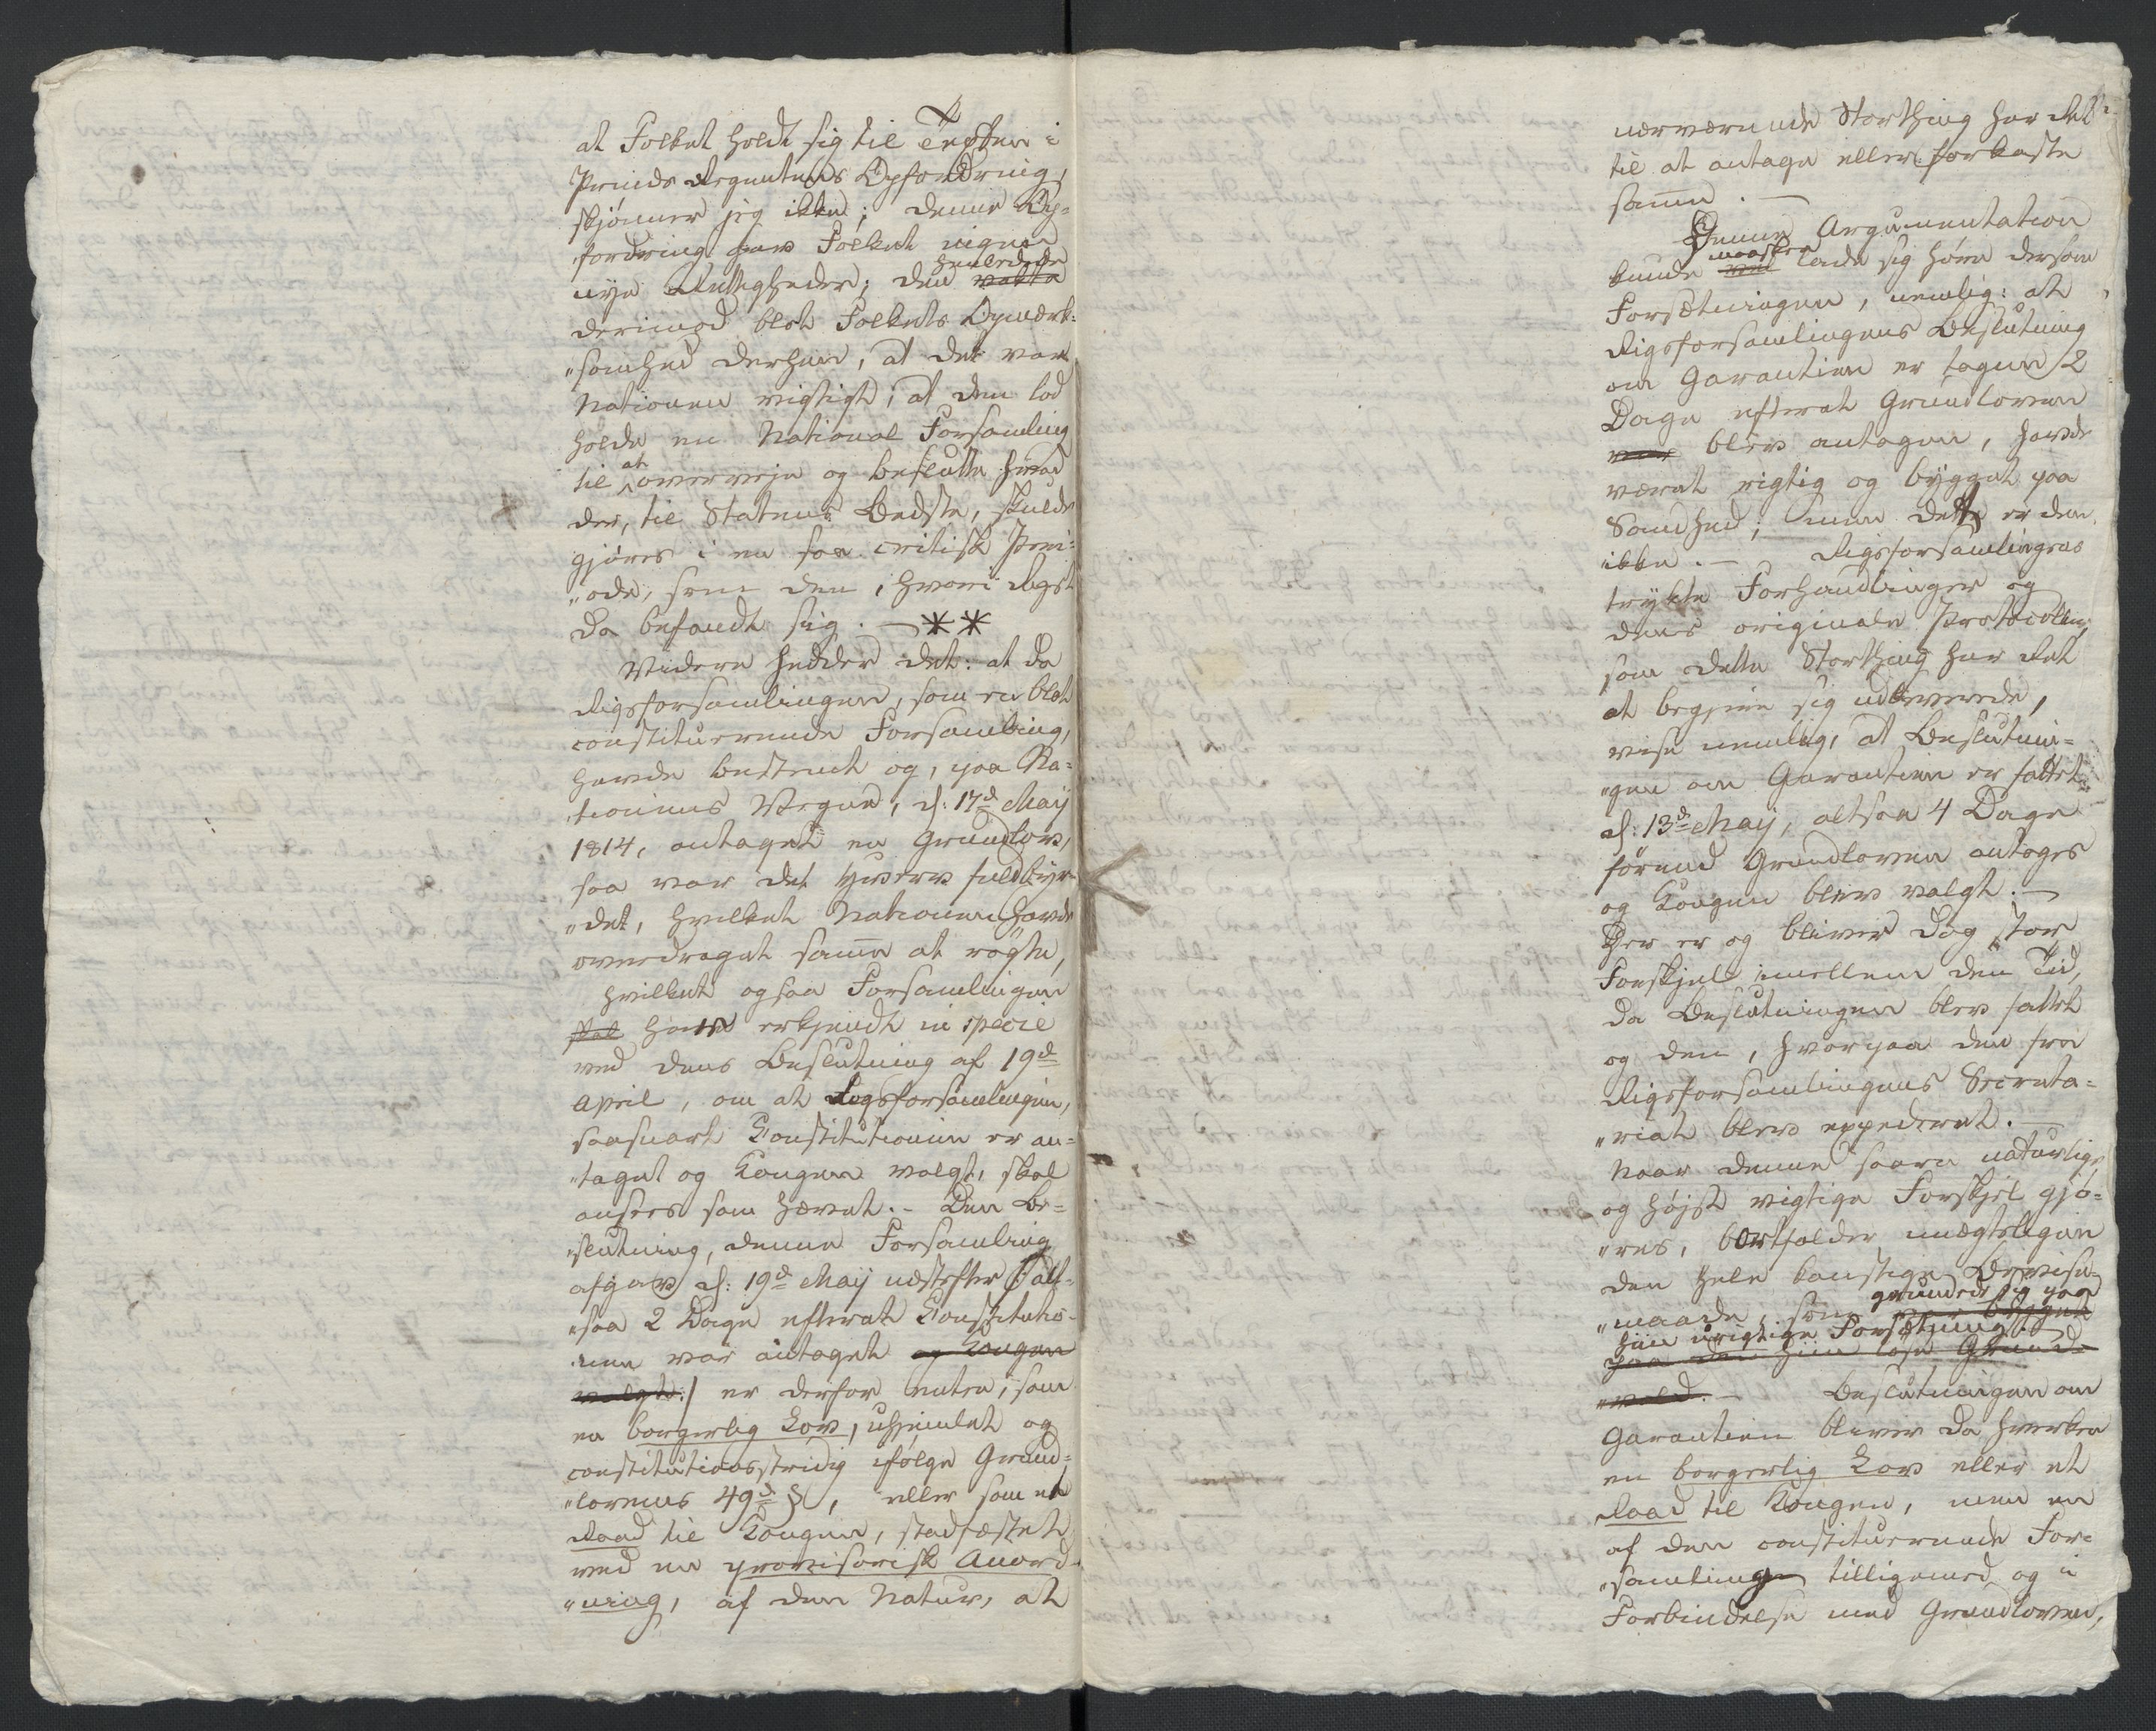 at Folket holdt sig til Texten i
Prinds Regentens Opfordring,
skjönner jeg ikke; denne Op-
fordring gav Folket ingen
nye Rettigheder; den henledede vakte
derimod blot Folkets Opmærk-
"somhed derhen, at det var
Nationen vigtigt, at den lod
holde en National Forsamling
til at overveje og beslutte hvad
der, til Statens Bedste, skulde
gjöres i en saa critisk Peri-
"ode, som den, hvori Riget
da befandt sig. — **
Videre hedder det: at da
Rigsforsamlingen, som en blot
constituerende Forsamling,
havde bestemt og, paa Na-
tionens Vegne, d: 17d May
1814, antaget en Grundlov,
saa var det Hverv fuldbyr-
"det, hvilket Nationen havde
overdraget samme at rögte,
hvilket ogsaa Forsamlingen
skal have erkjendt in specie
ved dens Beslutning af 19d
April, om at Rigsforsamlingen,
saasnart Constitutionen er an-
"taget og Kongen valgt, skal
ansees som hævet. - Den Be-
"slutning, denne Forsamling
afgav d: 19d May næstefter /: alt-
"saa 2 Dage efterat Constitutio-
nen var antaget og Kongen
valgt :/ er derfor enten, som
en borgerlig Lov, uhjemlet og
constitutionsstridig ifölge Grund-
"lovens 49d §, eller som et
Raad til Kongen, stadfæstet
ved en provisorisk Anord-
"ning, af den Natur, at
nærværende Storthing har Ret
til at antage eller forkaste
samme. —
Denne Argumentation
kunde maaskee vel lade sig höre dersom
Forsætningen, nemlig: at
Rigsforsamlingens Beslutning
om Garantien er tagen 2
Dage efterat Grundloven
var blev antagen, havde
været rigtig og bygget paa
Sandhed; men dette er den
ikke. — Rigsforsamlingens
trykte Forhandlinger og
dens originale Protocoller,
som dette Storthing har Ret
at begjere sig udleverede,
vise nemlig, at Beslutnin-
"gen om Garantien er fattet
d: 13d May, altsaa 4 Dage
förend Grundloven antoges
og Kongen blev valgt. —
Der er og bliver dog stor
Forskjel imellem den Tid,
da Beslutningen blev fattet
og den, hvorpaa den fra
Rigsforsamlingens Secreta-
"riat blev expederet. —
Naar denne saare naturlige
og höjst vigtige Forskjel gjö-
"res, bortfalder unægteligen
den hele konstige Beviis-
"maade, som grunder sig paa var bygget
hiin urigtige Forsætning.
paa den hiin löse Grund-
"vold. — Beslutningen om
Garantien bliver da hverken
en borgerlig Lov eller et
Raad til Kongen, men en
af den constituerende For-
"samling tilligemed og i
Forbindelse med Grundloven,